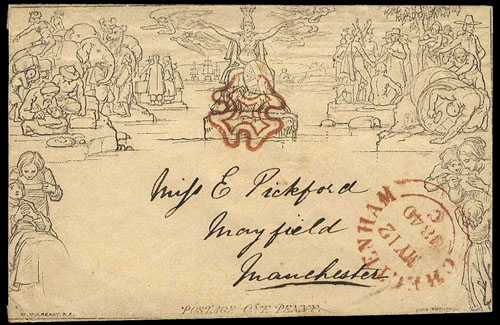 Miss E Pickford
Mayfield
Manchester
CHELTENHAM
MY 12
1840
C
POSTAGE ONE PENNY.
W. MULREADY, R.A.